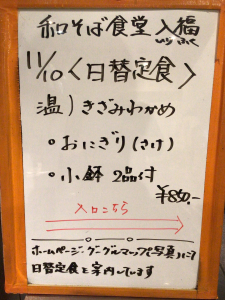 和そば食堂 入福
いりふく
11/10〈日替定食〉
温）きざみわかめ
・おにぎり（さけ）
・小鉢 2品付
¥850.-
入口こちら
ホームページ・グーグルマップで写真
日替定食を案内しています